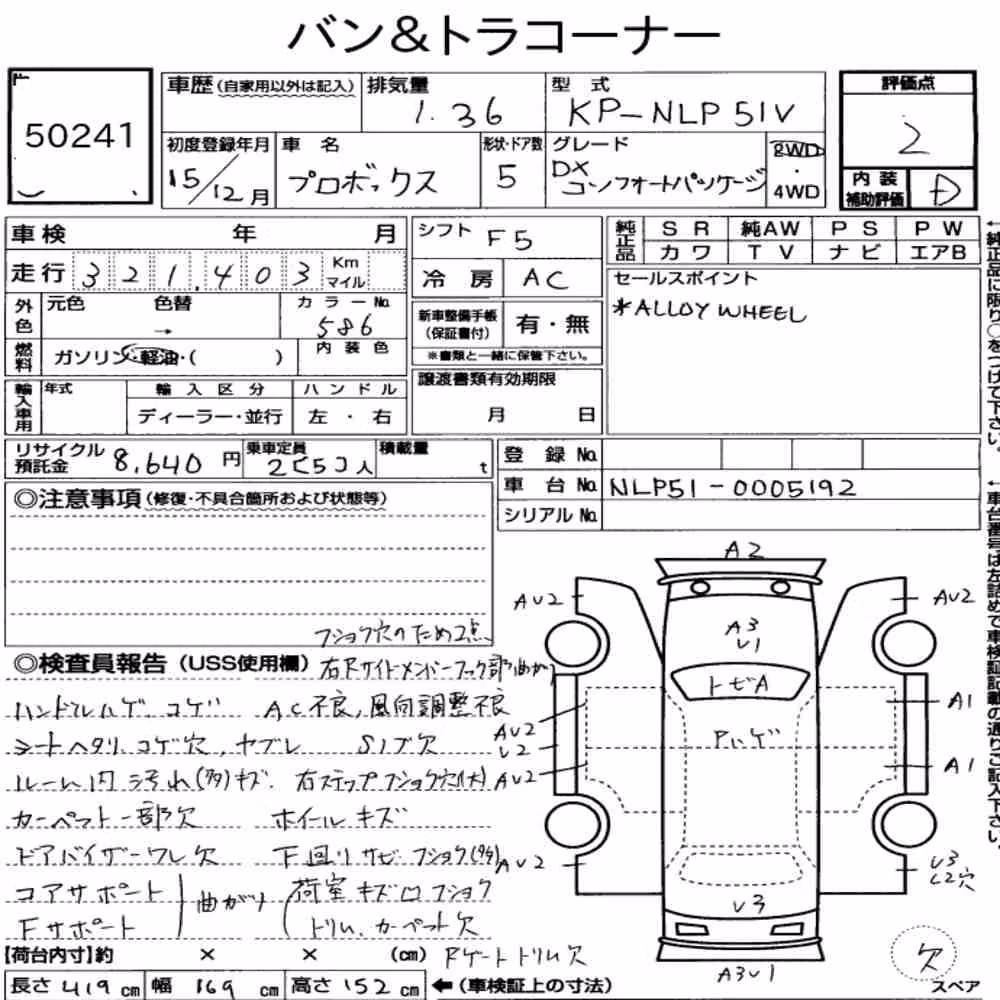 バン&トラコーナー
50241
車歴(自家用以外は記入)
排気量
1.36
型 式
KP-NLP51V
評価点
2
内装補助評価
D
初度登録年月
15/12月
車 名
プロボックス
形状・ドア数
5
グレード
DX
コンフォートパッケージ
2WD
・
4WD
車検 年 月
走行 321,403 Km マイル
シフト F5
冷 房 AC
純正品 SR 純AW PS PW
カワ TV ナビ エアB
外色 元色 色替 カラーNo.
→ 586
新車整備手帳(保証書付) 有・無
※書類と一緒に保管下さい。
セールスポイント
*ALLOY WHEEL
燃料 ガソリン・軽油・( ) 内装色
輸入車用 年式 輸入区分 ハンドル
ディーラー・並行 左・右
譲渡書類有効期限
月 日
←純正品に限り○をつけて下さい。
リサイクル預託金 8,640円
乗車定員 2[5]人
積載量 t
登録No.
車台No. NLP51-0005192
シリアルNo.
←車台番号は左詰めで車検証記載の通りご記入下さい。
◎注意事項(修復・不具合箇所および状態等)
フショク穴のため2点
◎検査員報告(USS使用欄)
右Fサイドメンバーフック部曲がり
ハンドルハゲ、コゲ AC不良,風向調整不良
シートヘタリ、コゲ穴,ヤブレ Sノブ欠
ルーム内汚れ(多)キズ、右ステップフショク穴(大)
カーペット一部欠 ホイールキズ
ドアバイザーワレ欠 下回りサビ・フショク(多)
コアサポート
Fサポート
曲がり
荷室キズ凹フショク
トリム、カーペット欠
Rゲートトリム欠
【荷台内寸】約 × × (cm)
長さ 419 cm 幅 169 cm 高さ 152 cm
←(車検証上の寸法)
A2
AU2
AU2
A3
U1
トビA
AU2
U2
Aハゲ
A1
AU2
A1
AU2
U3
U2穴
U3
A3U1
欠
スペア